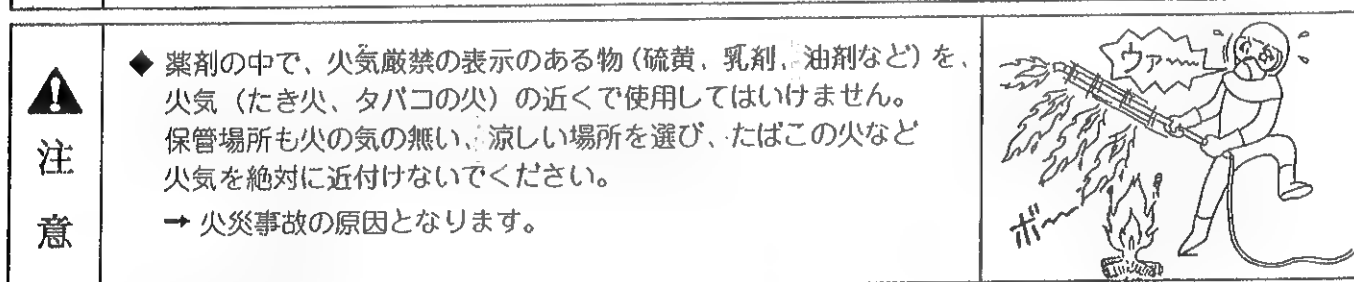 注意
◆ 薬剤の中で、火気厳禁の表示のある物（硫黄、乳剤、油剤など）を、
火気（たき火、タバコの火）の近くで使用してはいけません。
保管場所も火の気の無い、涼しい場所を選び、たばこの火など
火気を絶対に近付けないでください。
→ 火災事故の原因となります。
ウァ〜
ボ〜